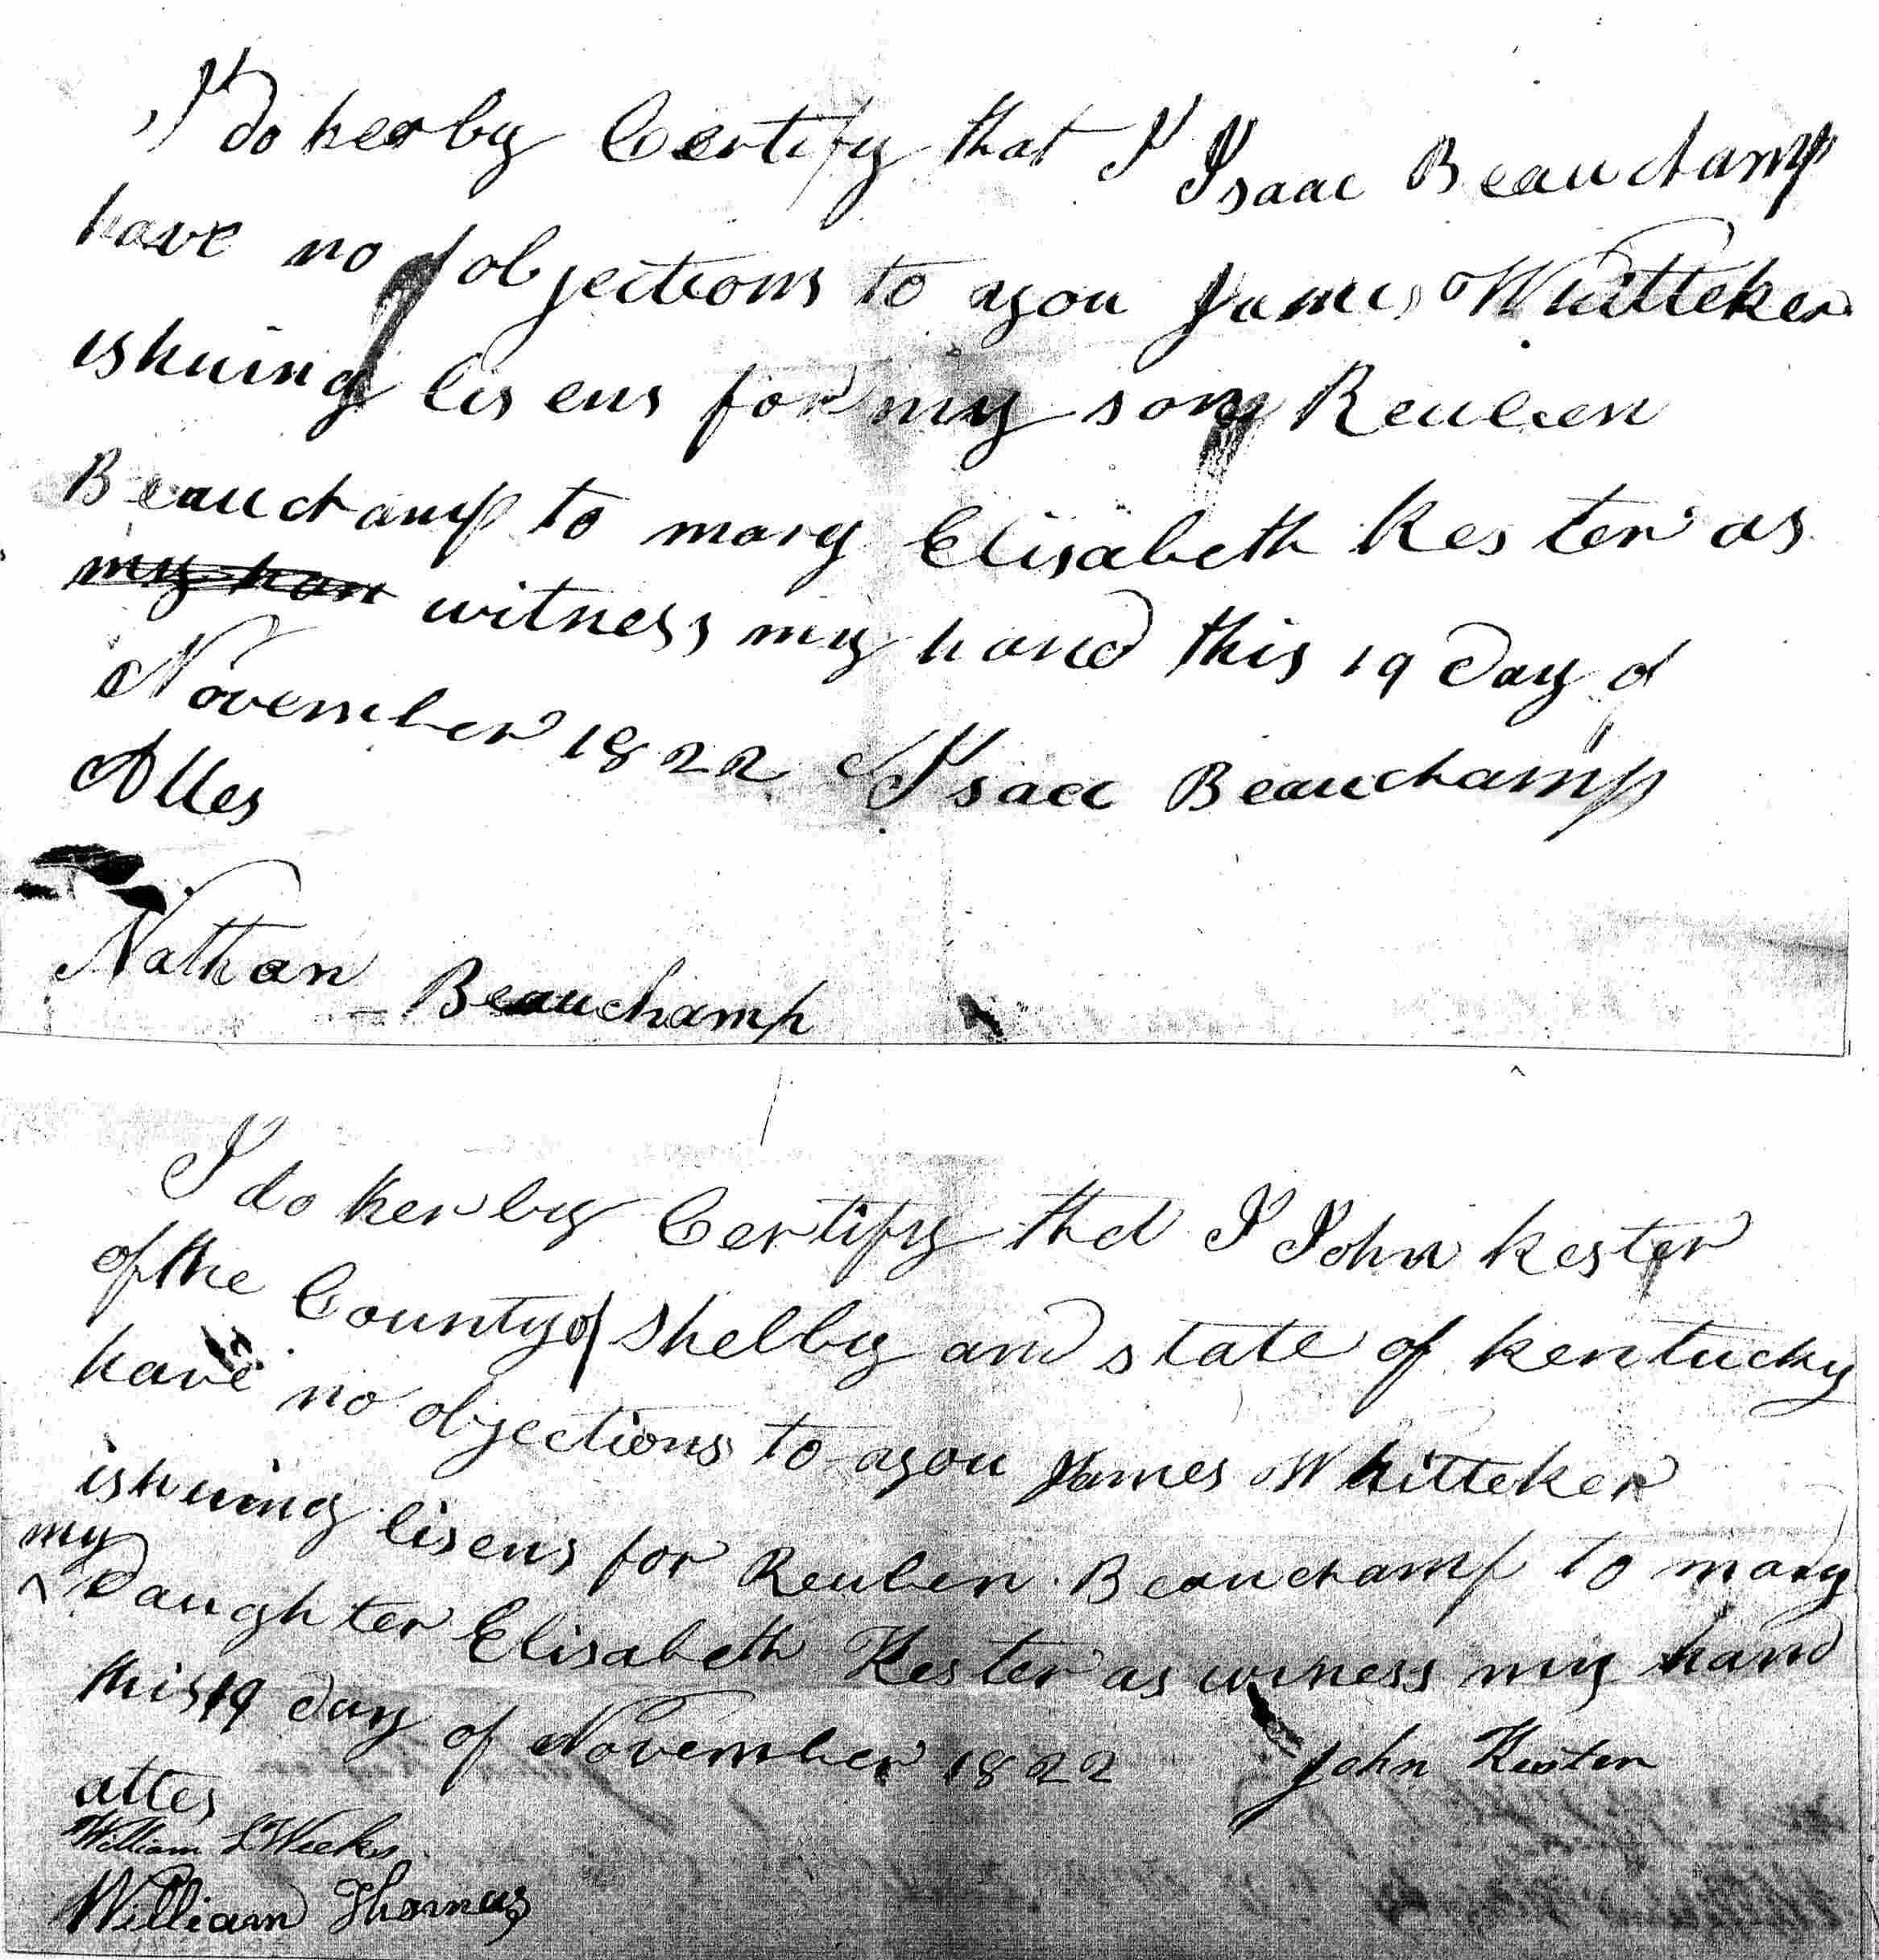 I do herby Certify that I Isaac Beauchamp
have no objections to you James Whitteker
ishuing lisens for my son Reuben
Beauchamp to mary Elisabeth Kester as
my han witness my hand this 19 Day of
November 1822 Isaac Beauchamp
Attes
Nathan Beauchamp
I do herby Certify that I John Kester
of the County of Shelby and state of Kentucky
have no objections to you James Whitteker
ishuing lisens for Reuben Beauchamp to mary
my
^ Daughter Elisabeth Kester as witness my hand
this 19 day of November 1822 John Kester
attes
William L Weeks
William Thomas